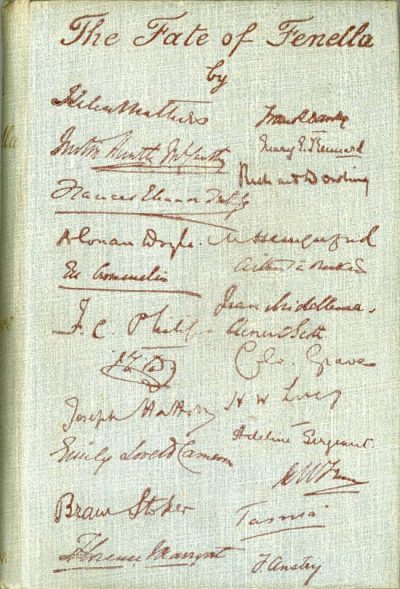 The Fate of Fenella
by
Helen Mathers
Justin Huntly McCarthy
Frances Eleanor Trollope
A Conan Doyle.
May Crommelin
F. C. Philips
"Rita"
Joseph Hatton
Emily Lovett Cameron
Bram Stoker
Florence Marryat
Frank Danby
Mary E. Kennard
Richard Dowling
M Hungerford
Arthur à Beckett
Jean Middlemass.
Clement Scott
Clo. Graves
H W Lucy
Adeline Sergeant.
Tasma.
F Anstey